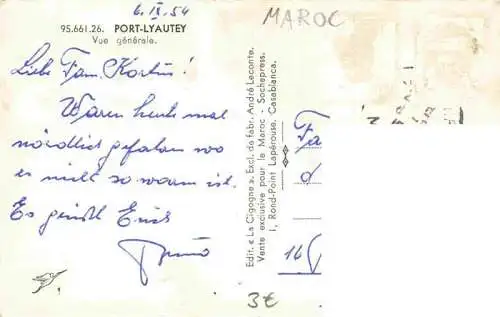 6. IX. 54
MAROC
95.661.26. PORT-LYAUTEY
Vue générale.
Liebe Fam.
Waren heute mal
nördlich gefahren wo
es nicht so warm ist.
Es grüßt Euch
Bruno
Edit. « La Cigogne ». Excl. de fabr. André Leconte.
Vente exclusive pour le Maroc - Sochepress.
1, Rond-Point Lapérouse. Casablanca.
Fa
d
16
3€